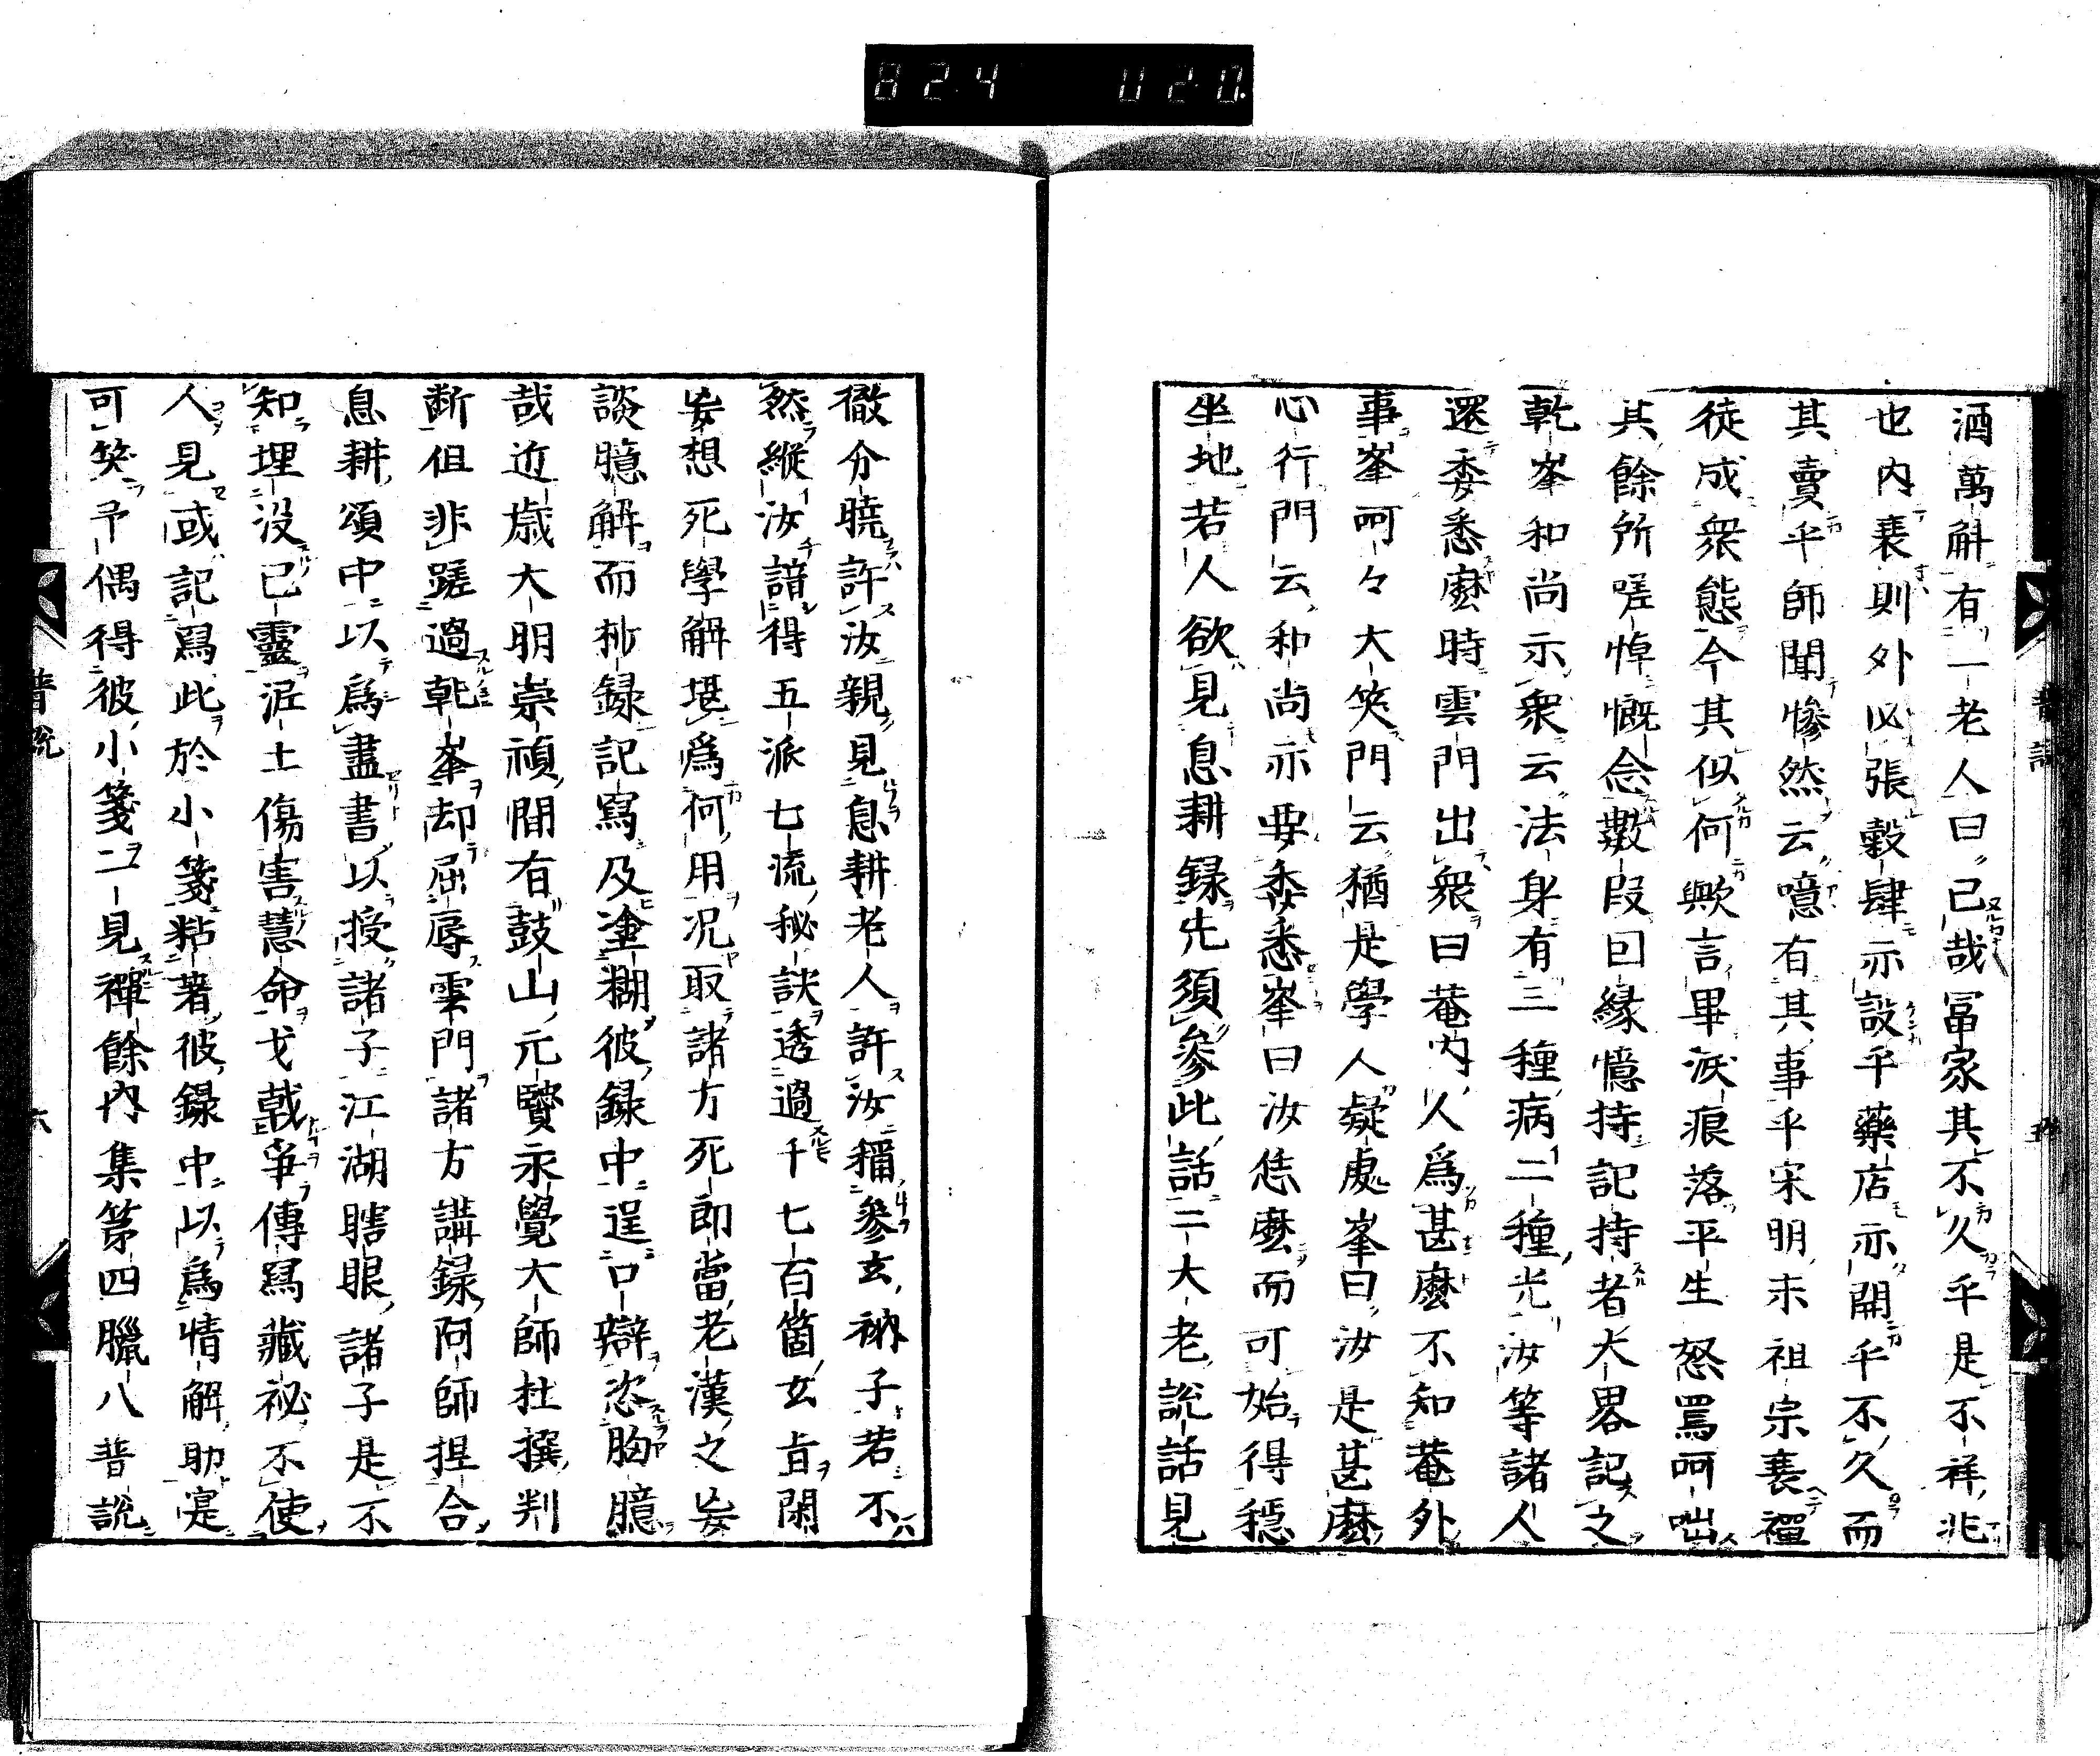 824 020
酒萬斛有一老人曰已哉冨家其不久乎是不祥兆
也内衰則外必張穀肆亦設乎藥店亦開乎不久而
其賣乎師聞慘然云噫有其事乎宋明末祖宗衰禪
徒成衆態今其似何歟言畢涙痕落平生怒罵呵咄
其餘所嗟悼慨念數段回縁憶持記持者大畧記之
乾峯和尚示衆云法身有三種病二種光汝等諸人
還委悉麼時雲門出衆曰菴内人爲甚麼不知菴外
事峯呵々大笑門云猶是學人疑處峯曰汝是甚麼
心行門云和尚亦要委悉峯曰汝恁麼而可始得穏
坐地若人欲見息耕録先須參此話二大老説話見
徹分曉許汝親見息耕老人許汝稱參玄衲子若不
然縱汝諳得五派七流秘訣透過千七百箇玄旨閑
妄想死學解堪爲何用况取諸方死郎當老漢之妄
談臆解而抄録記寫及塗糊彼録中逞口辯恣胸臆
哉近歳大明崇禎間有鼓山元賢永覺大師杜撰判
断伹非蹉過乾峯却屈辱雲門諸方講録阿師捏合
息耕頌中以爲盡書以授諸子江湖瞎眼諸子是不
知埋没已靈泥土傷害慧命戈戟爭傳寫藏祕不使
人見或記寫此於小箋粘著彼録中以爲情解助寔
可笑予偶得彼小箋二一見禪餘内集第四臘八普説
普説 五
普説 六